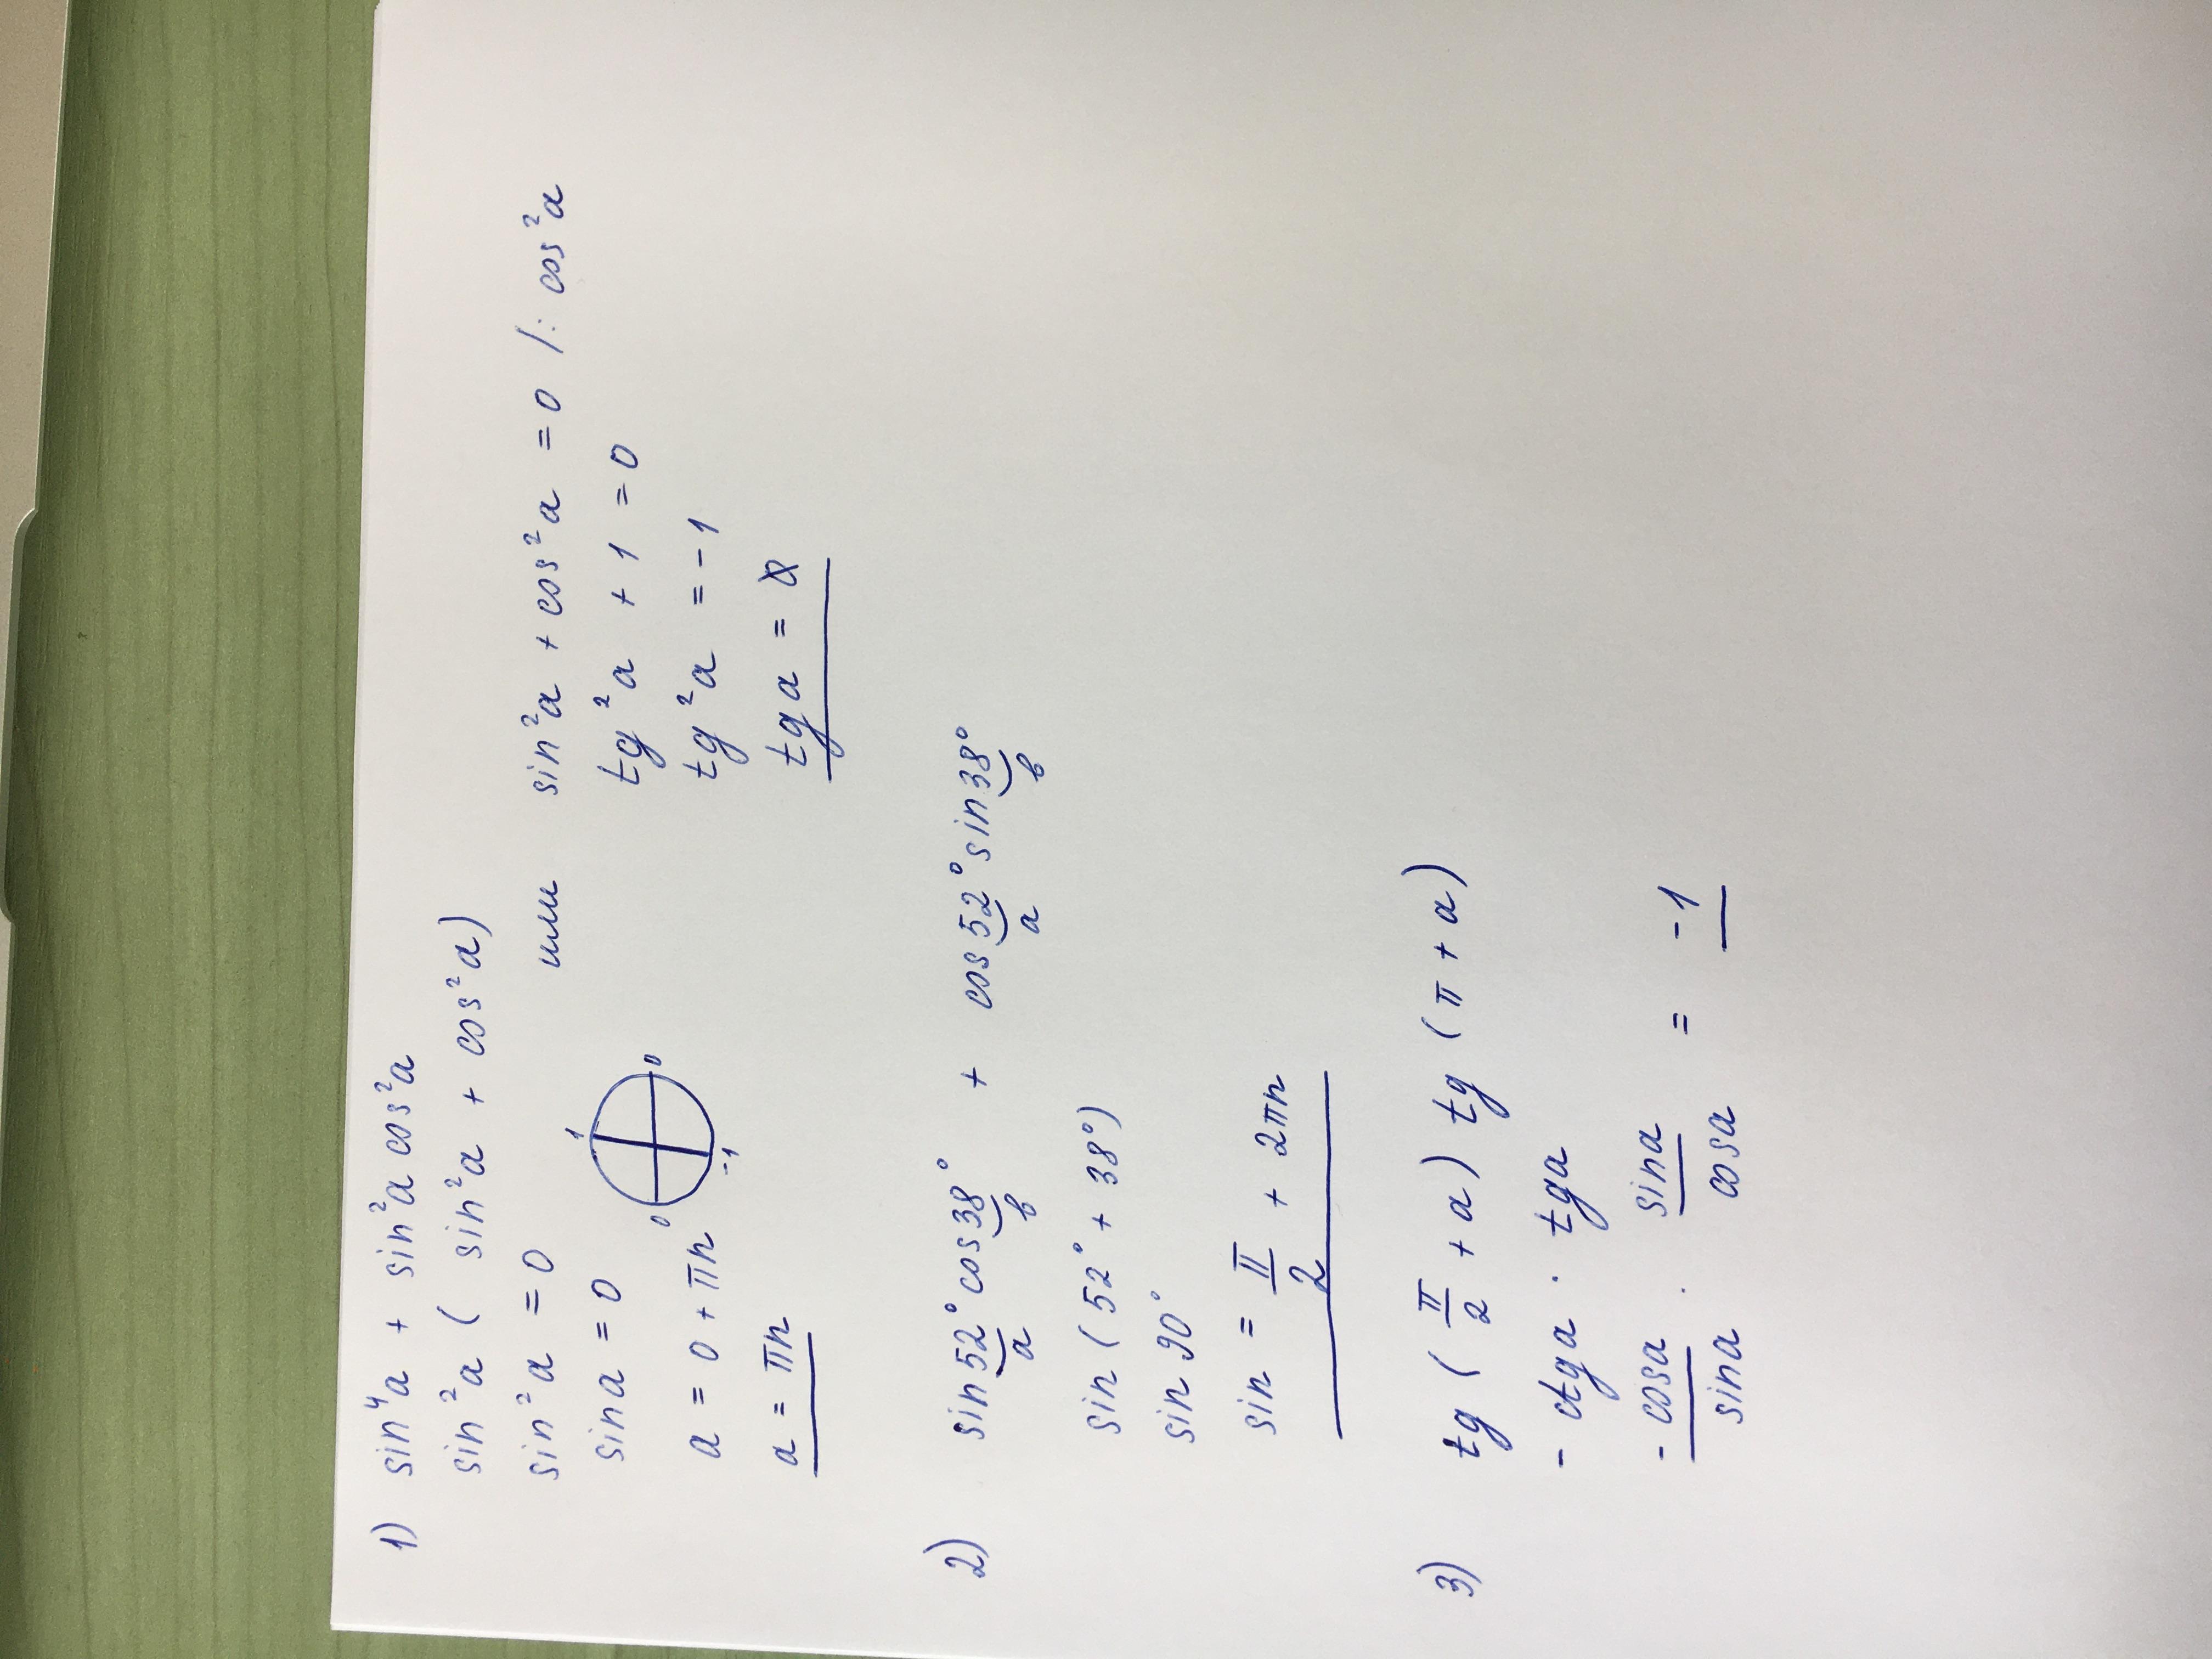 1) sin⁴a + sin²a cos²a
sin²a ( sin²a + cos²a)
sin²a = 0 или sin²a + cos²a = 0 /: cos²a
sina = 0 tg²a + 1 = 0
1
0 0
-1
a = 0 + πn tg²a = -1
a = πn tg a = ∅
2) sin52° cos38° + cos52° sin38°
a b a b
sin ( 52° + 38°)
sin 90°
sin = π/2 + 2πn
3) tg ( π/2 + a) tg (π + a)
- ctga · tga
- cosa/sina · sina/cosa = -1